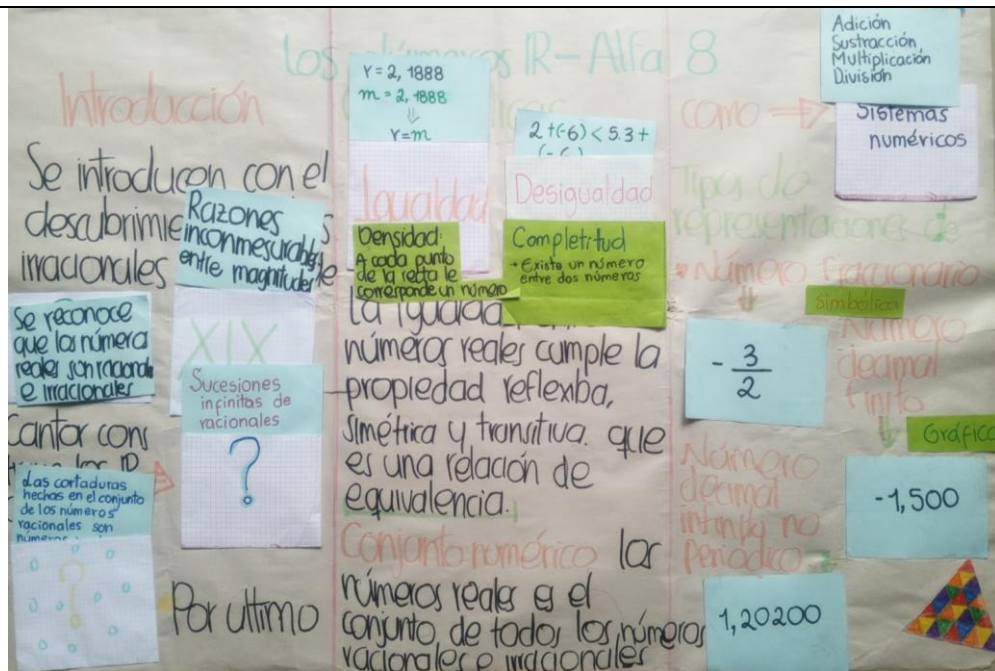 Los Números IR-Alfa 8
Introducción
Se introducen con el
irracionales
Razones
inconmesurables
entre magnitudes
Se reconoce
que los números
reales son racional
e irracionales
XIX
Sucesiones
infinitas de
racionales
?
Cantor cons
Las cortaduras
hechas en el conjunto
de los números
racionales son
?
Por ultimo
r = 2, 1888
m = 2, 1888
⇓
r=m
Igualdad
Densidad:
A cada punto
de la recta le
corresponde un número
2 +(-6) < 5.3 +
(-6)
Desigualdad
Completitud
• Existe un número
entre dos números
La igualdad
números reales cumple la
propiedad reflexiba,
simétrica y transitiva. que
es una relación de
equivalencia.
Conjunto numérico los
números reales es el
conjunto de todos los números
racionales e irracionales
Adición
Sustracción
Multiplicación
División
como ⇒
Sistemas
numéricos
Tipos de
representaciones de
• Número fraccionario
Simbólica
- 3/2
Número
decimal
finito
Gráfico
-1,500
Número
decimal
infinito no
periódico
1,20200